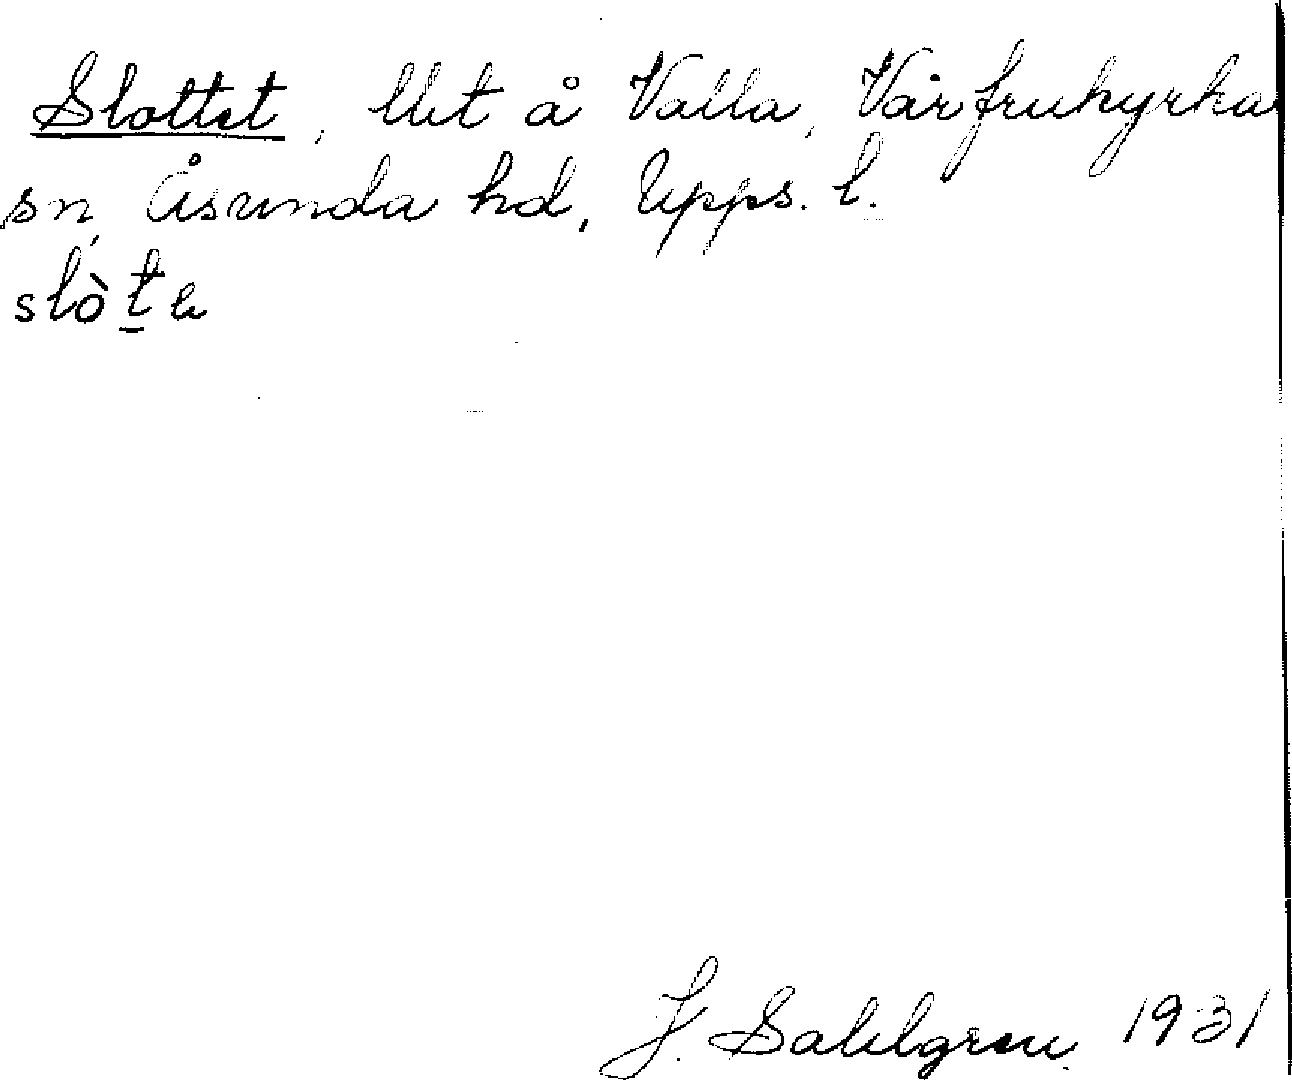 Slottet, llet å Valla, Vårfrukyrka
sn, Åsunda hd, Upps. l.
slòt̲e
J. Sahlgren 1931